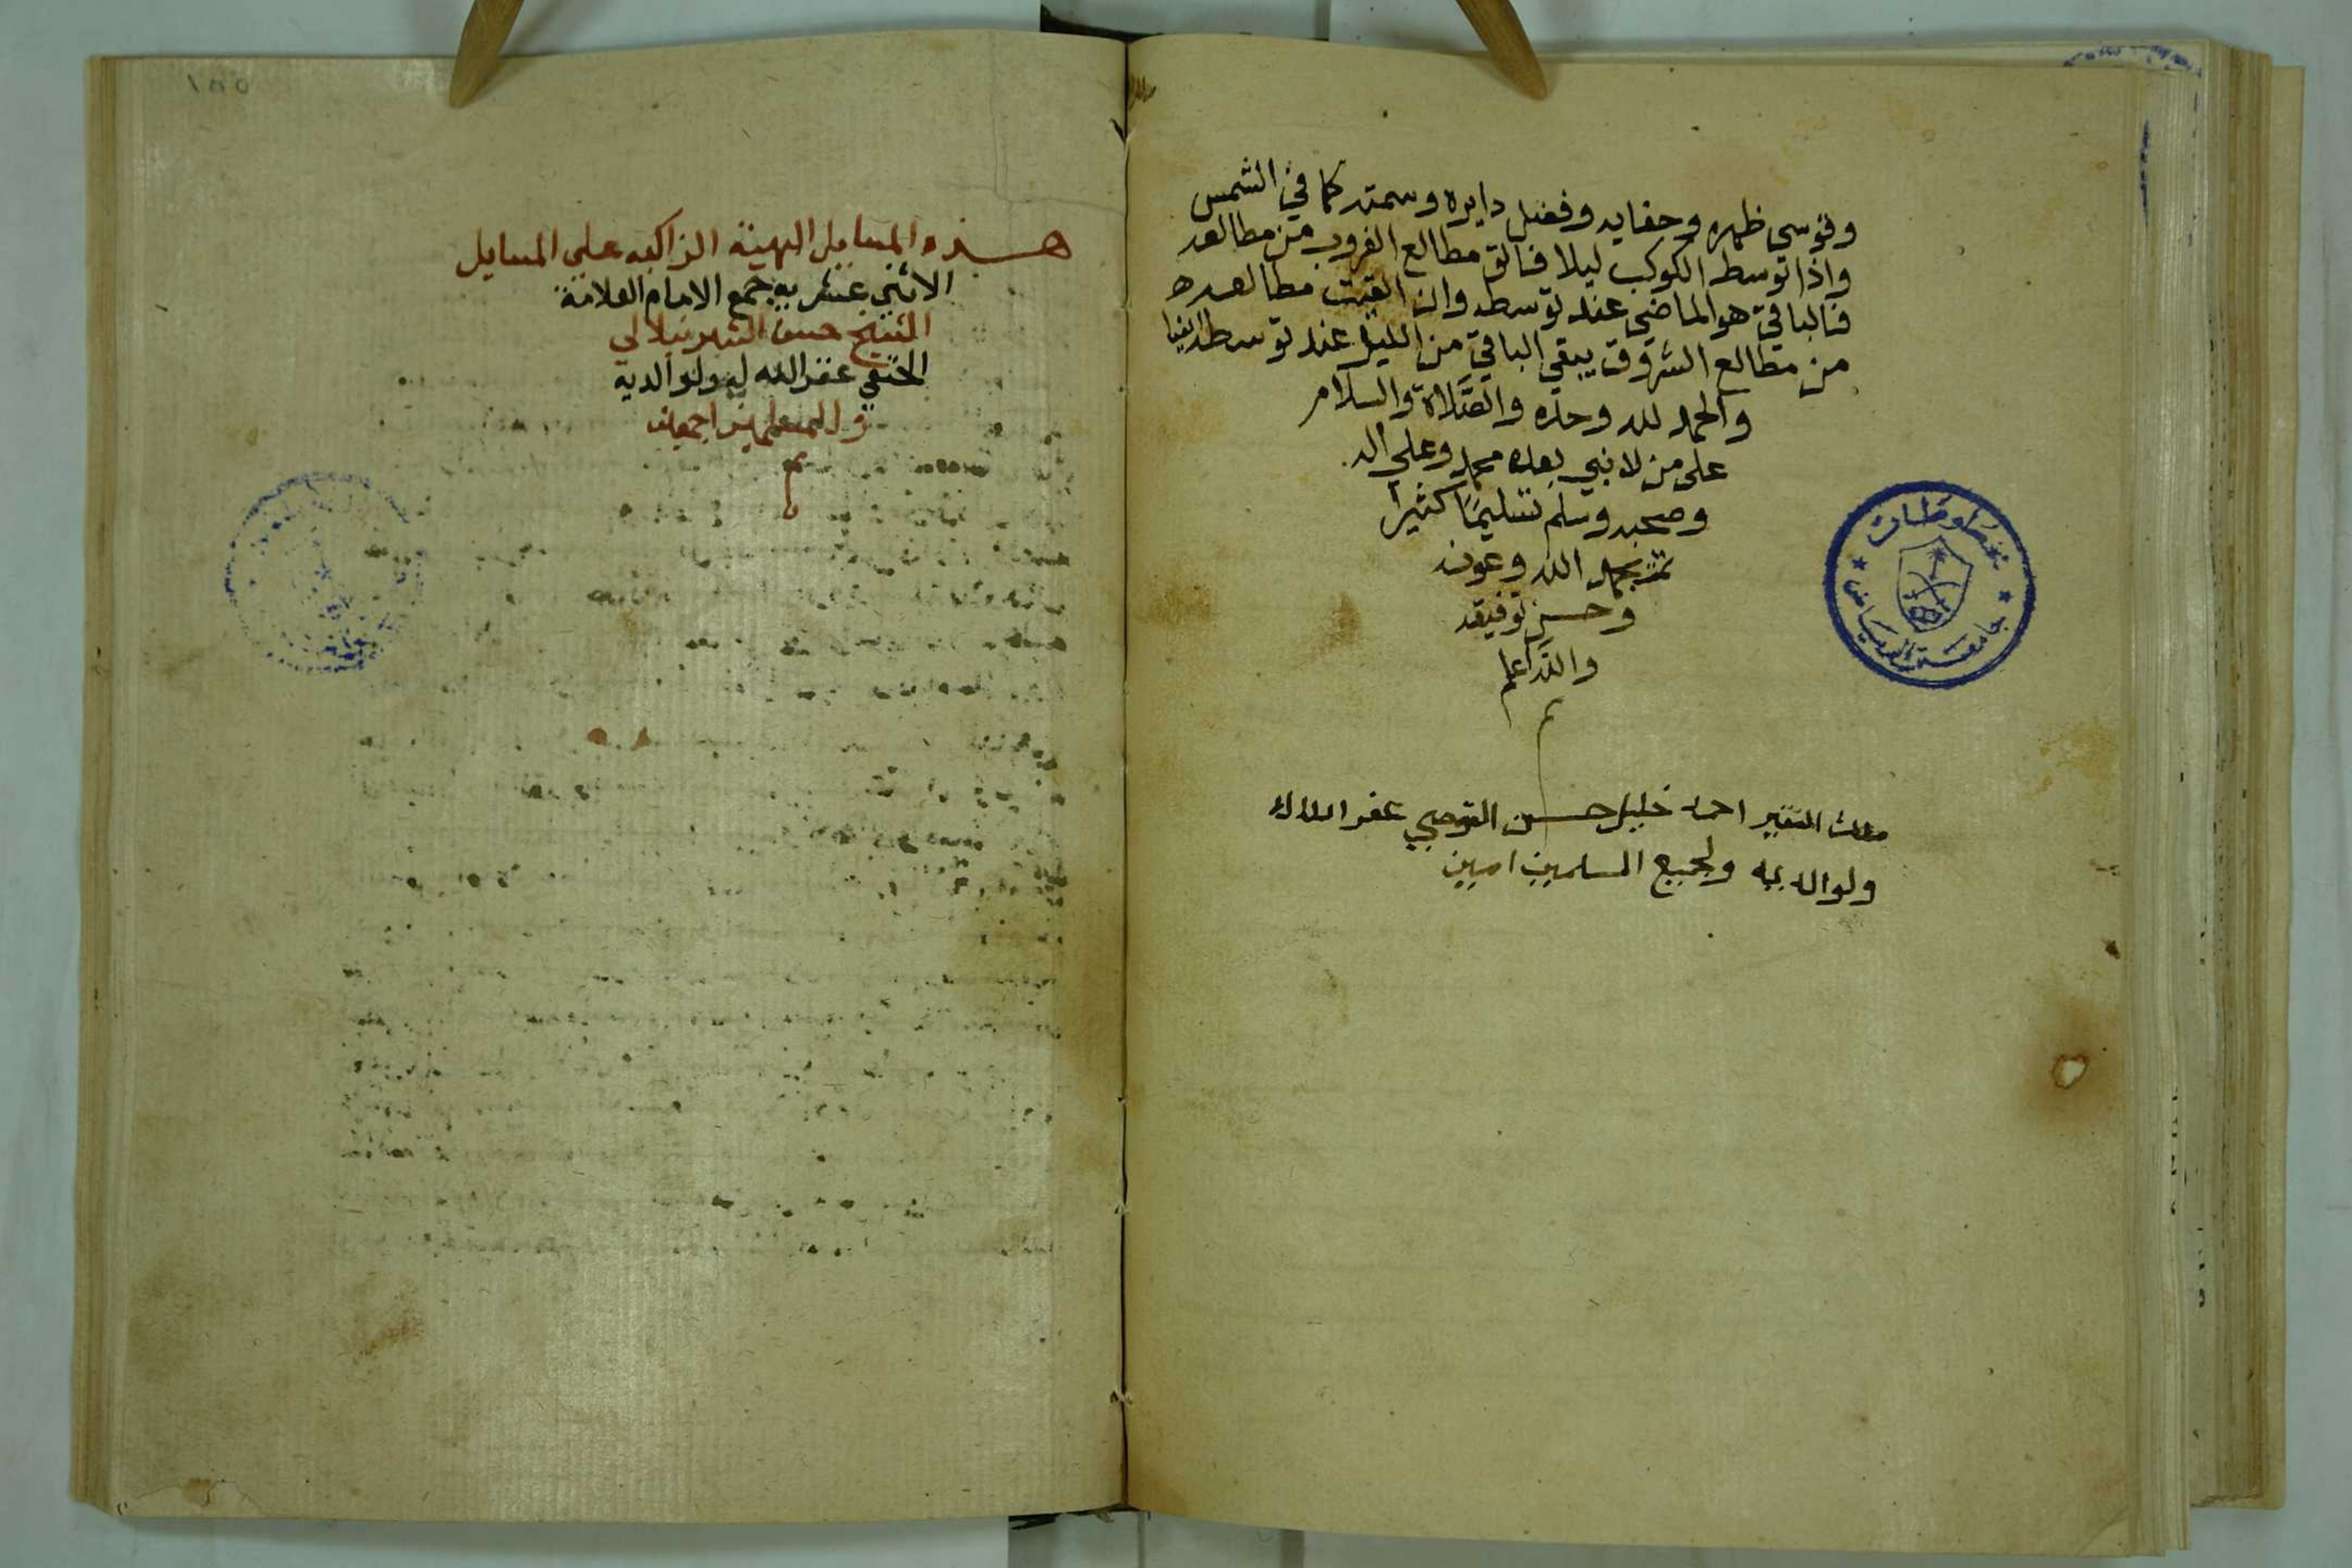 وقوسي ظهره وحفايه وفضل دايره وسمته كما في الشمس
واذا توسط الكوكب ليلا فالق مطالع الغروب من مطالعه
فالباقي هو الماضي عند توسطه وان القيت مطالعه
من مطالع الشروق يبقي الباقي من الليل عند توسطه ايضا
والحمد لله وحده والصَّلاة والسلام
على من لا نبي بعده محمد وعلي اله
وصحبه وسلم تسليمًا كثيرًا
تمت بحمد الله وعونه
وحسن توفيقه
والله اعلم
م
ملك الفقير احمد خليل حسن عفر الله له
ولوالديه ولجميع المسلمين امين
مخطوطات
جامعة الرياض
١٨٥
هذه المسايل البهية الزاكيه علي المسايل
الاثني عشريه جمع الامام العلامة
الشيخ حسن الشرنبلالي
الحنفي غفر الله له ولوالديه
وللمسلمين اجمعين
م